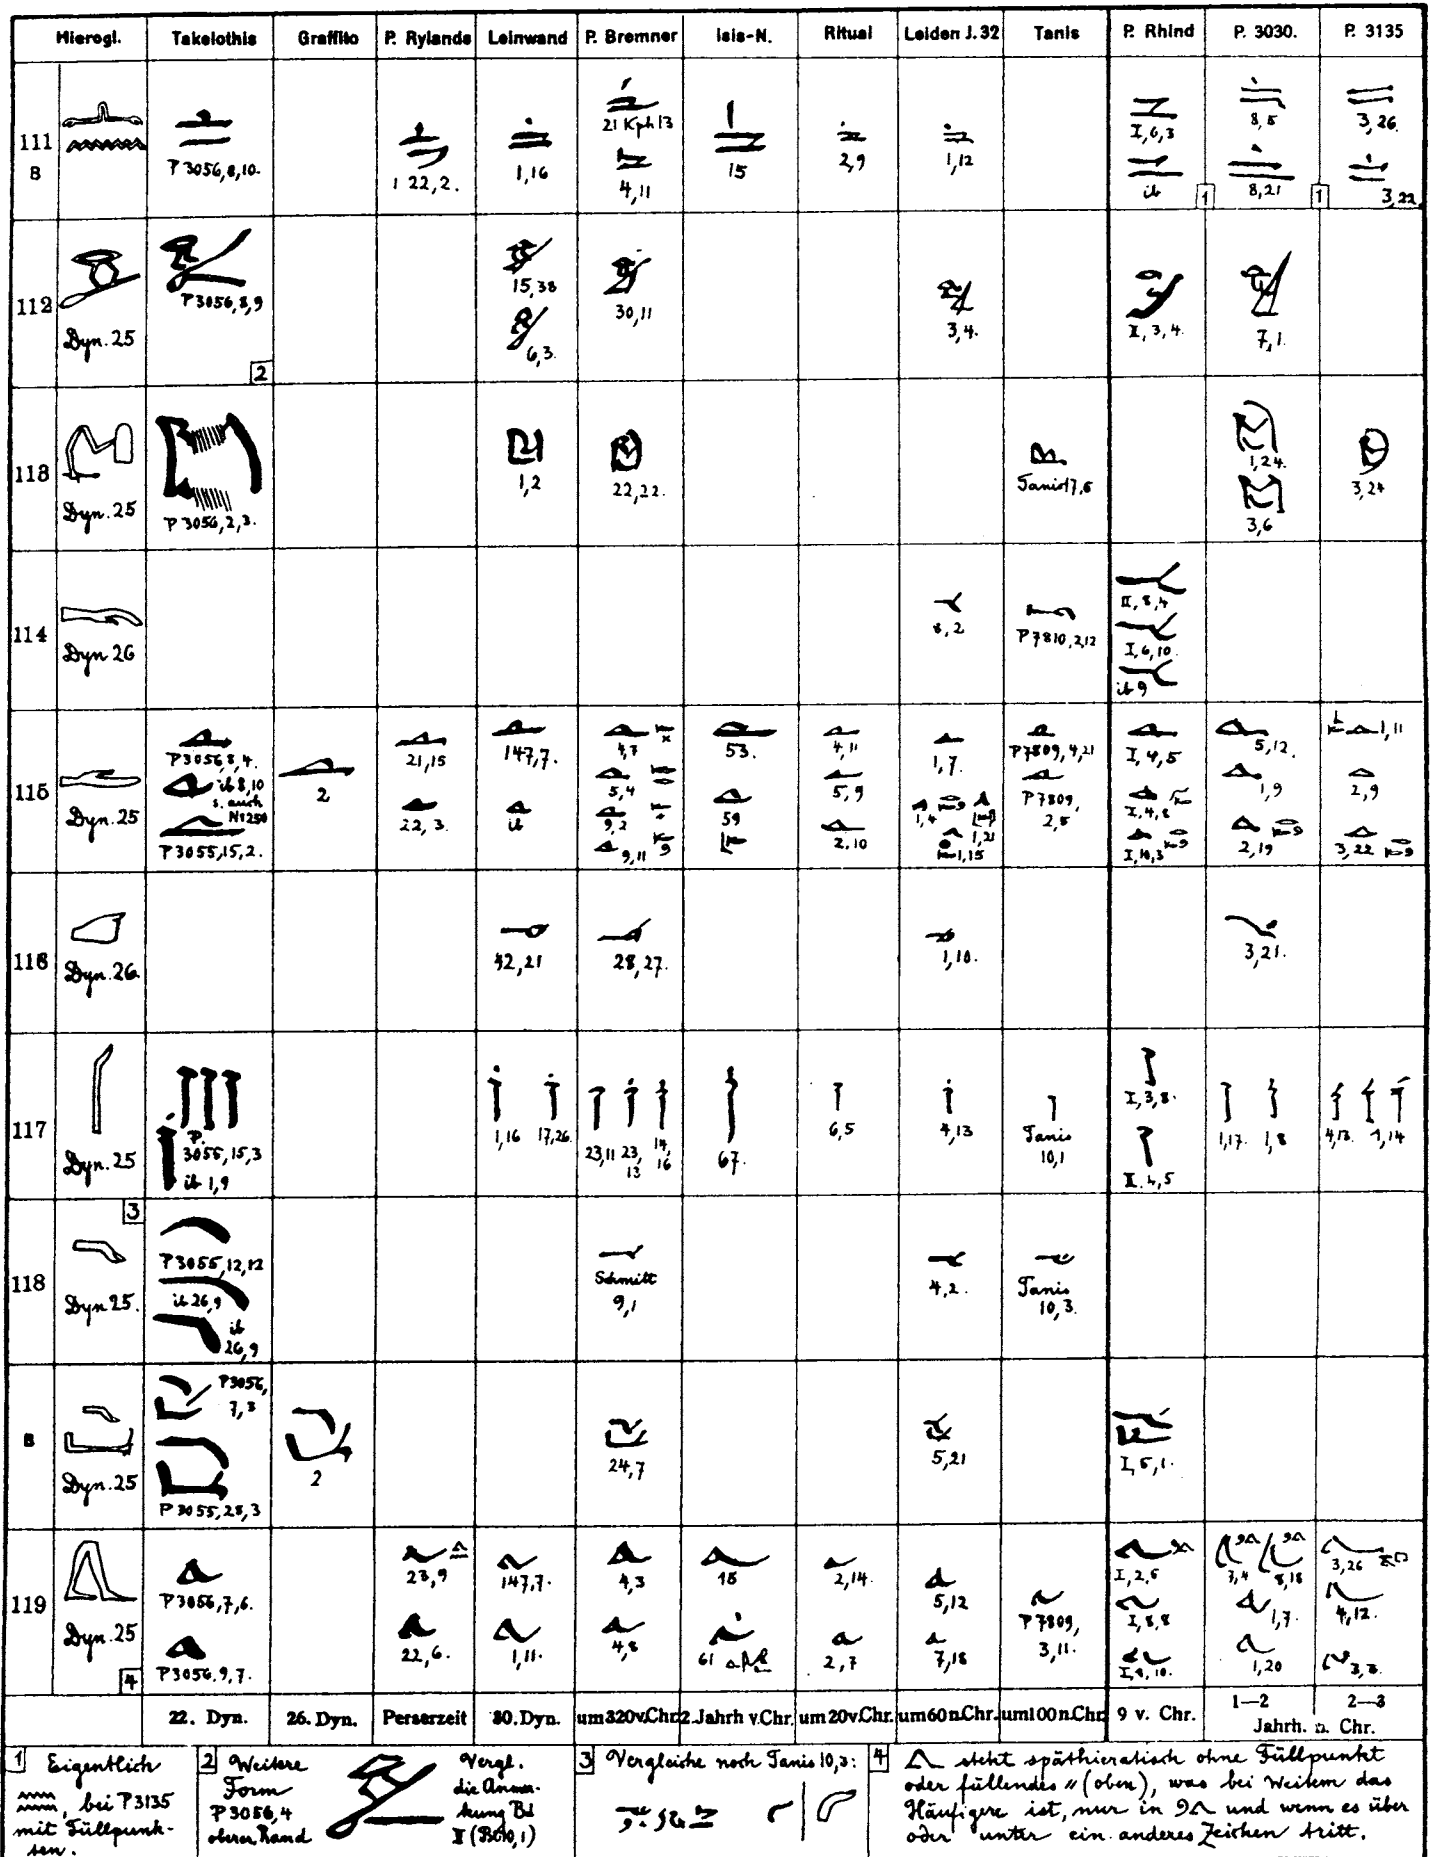 Hierogl. Takelothis Graffito P. Rylands Leinwand P. Bremner Isis-N. Ritual Leiden J. 32 Tanis P. Rhind P. 3030. P. 3135
111
B
P 3056,8,10.
1 22,2.
1,16
21 Kph 13
4,11
15
2,9
1,12
I,6,3
ib
8,5
8,21
1
3,26
1
3,22
112
Dyn. 25
P 3056,8,9
2
15,38
6,3.
30,11
3,4.
II,3,4.
7,1.
113
Dyn. 25
P 3056,2,3.
1,2
22,22.
Tanis 17,6
1,24.
3,6
3,24
114
Dyn 26
8,2
P 7810,2,12
II,8,4
I,6,10.
ib 9
115
Dyn. 25
P 3056,8,4.
ib 8,10
s. auch
N° 250
P 3055,15,2.
2
21,15
22,3.
147,7.
ib
4,7
5,4
9,2
9,11
53.
59
4,11
5,9
2,10
1,7.
1,4
1,21
1,15
P 7809,4,21
P 7809,
2,5
I,4,5
I,4,8
I,10,3
5,12.
1,9
2,19
1,11
2,9
3,22
116
Dyn. 26
42,21
28,27.
1,10.
3,21.
117
Dyn. 25
P.
3055,15,3
ib 1,9
1,16 17,26.
23,11 23,
13
14,
16
67.
6,5
4,13
Tanis
10,1
I,3,8.
II.4,5
1,17. 1,8
4,13. 1,14
3
118
Dyn 25.
P 3055,12,12
ib 26,9
ib
26,9
Schmitt
9,1
4,2.
Tanis
10,3.
B
Dyn. 25
P 3056,
7,3
P 3055,28,3
2
24,7
5,21
I,5,1.
119
Dyn. 25
4
P 3056,7,6.
P 3056.9,7.
23,9
22,6.
147,7.
1,11.
4,3
4,8
18
61
2,14.
2,7
5,12
7,18
P 7809,
3,11.
I,2,6
I,8,8
I,9,10.
3,4 8,18
1,7.
1,20
3,26
4,12.
3,3.
22. Dyn. 26. Dyn. Perserzeit 30. Dyn. um 320 v. Chr. 2. Jahrh v. Chr. um 20 v. Chr. um 60 n. Chr. um 100 n. Chr 9 v. Chr. 1—2 2—3
Jahrh. n. Chr.
1 Eigentlich
, bei P 3135
mit Füllpunk-
ten.
2 Weitere
Form
P 3056,4
oberer Rand
Vergl.
die Anmer-
kung Bd
II
3 Vergleiche noch Tanis 10,3:
4 steht späthieratisch ohne Füllpunkt
oder füllendes " (oben), was bei weitem das
Häufigere ist, nur in und wenn es über
oder unter ein anderes Zeichen tritt.